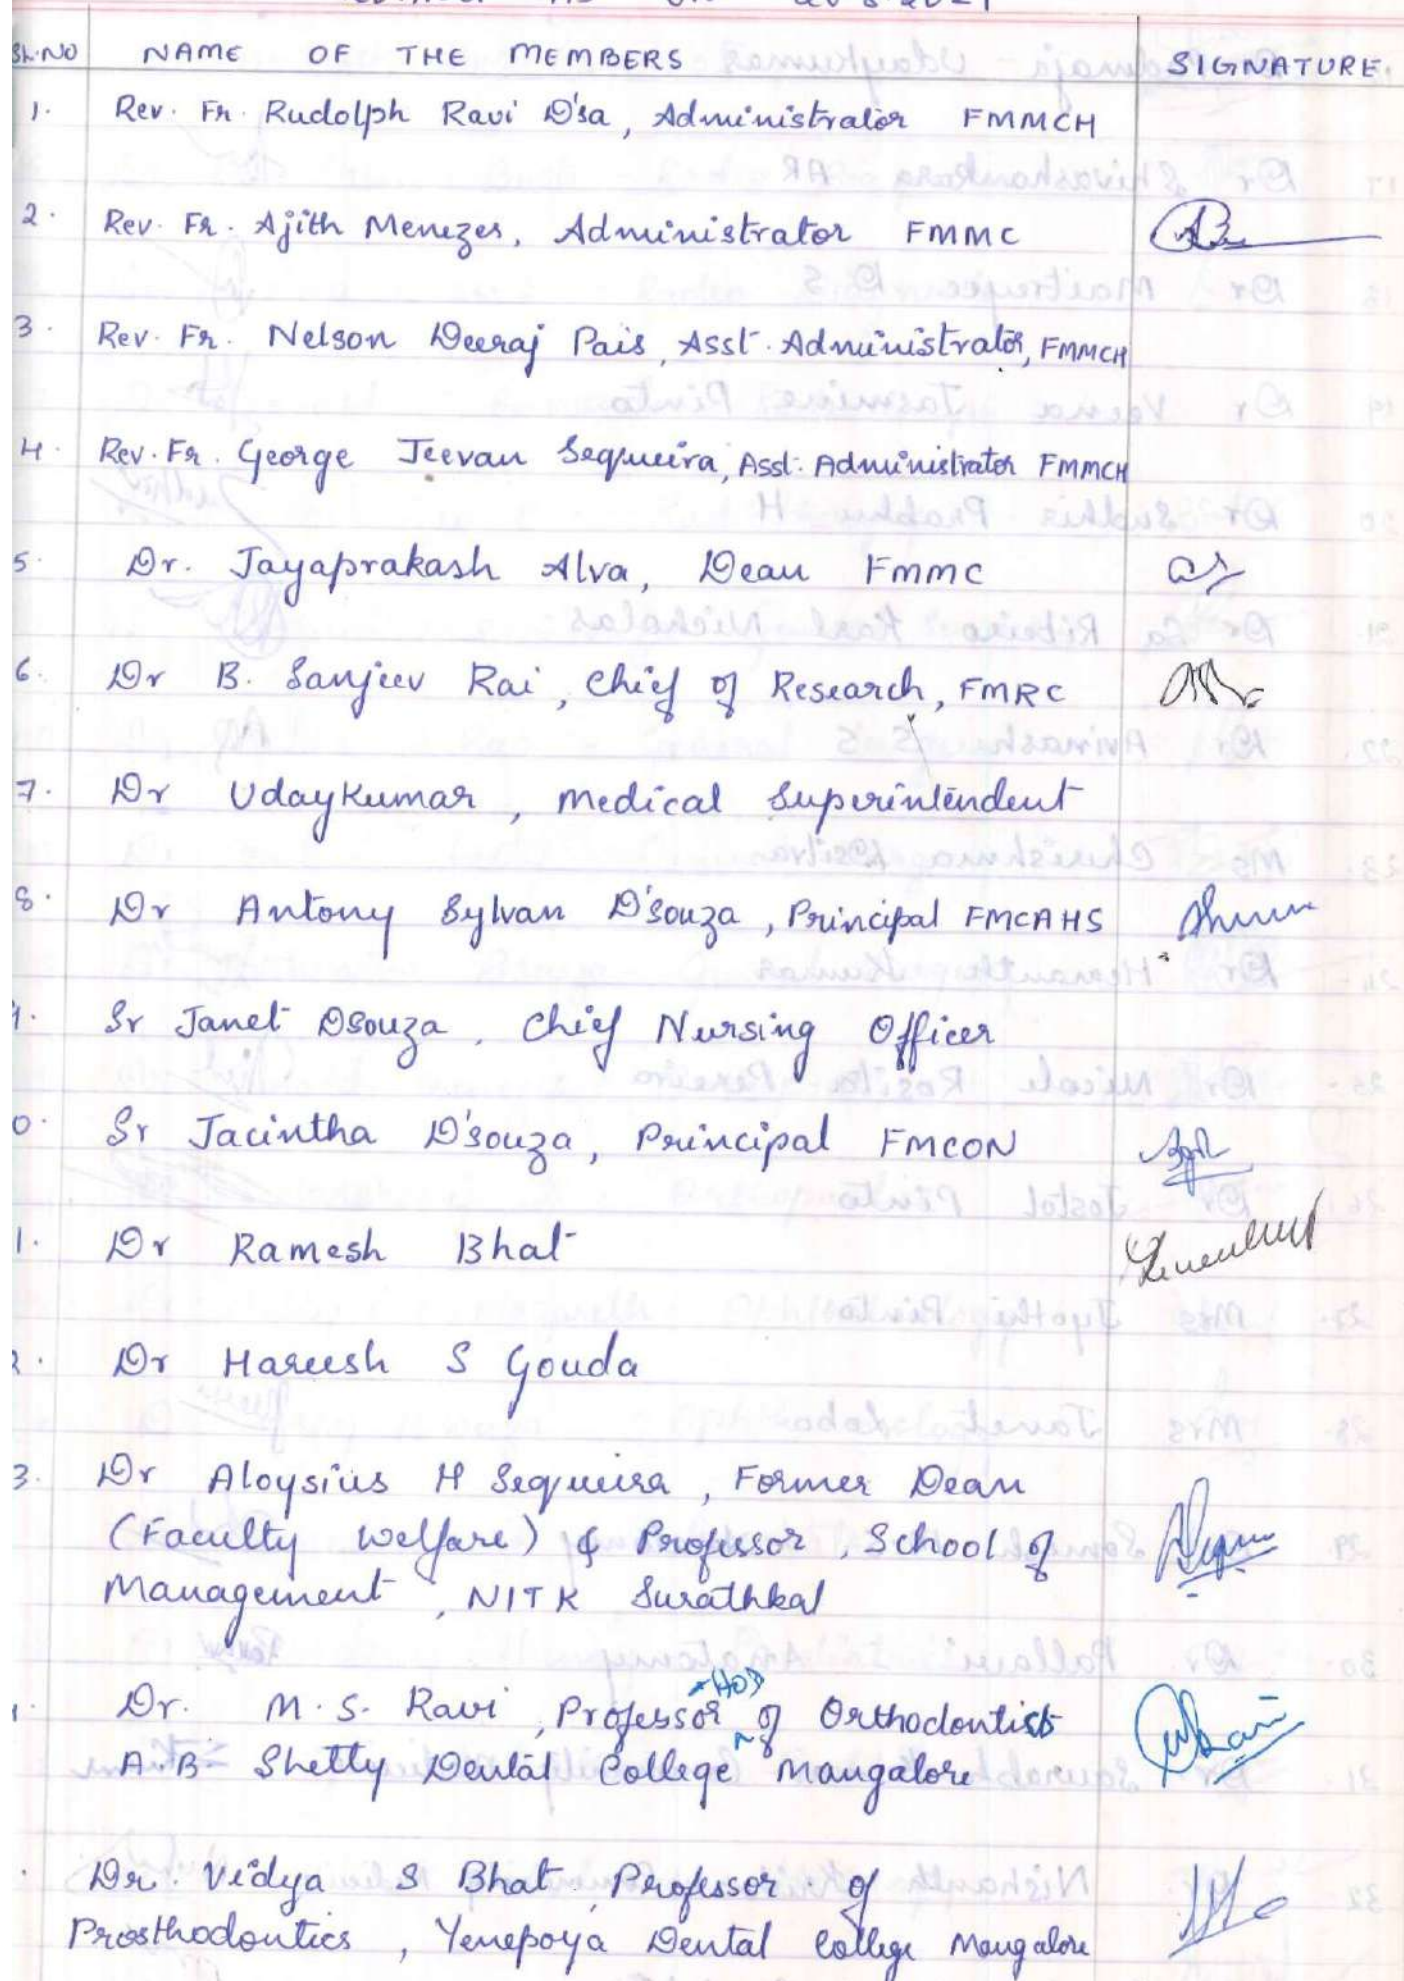 SL.NO NAME OF THE MEMBERS SIGNATURE.
1. Rev. Fr. Rudolph Ravi D'sa, Administrator FMMCH
2. Rev. Fr. Ajith Menezes, Administrator FMMC
3. Rev. Fr. Nelson Deeraj Pais, Asst. Administrator, FMMCH
4. Rev. Fr. George Jeevan Sequeira, Asst. Administrator FMMCH
5. Dr. Jayaprakash Alva, Dean FMMC
6. Dr B. Sanjeev Rai, Chief of Research, FMRC
7. Dr Udaykumar, Medical Superintendent
8. Dr Antony Sylvan D'souza, Principal FMCAHS
9. Sr Janet Dsouza, Chief Nursing Officer
0. Sr Jacintha D'souza, Principal FMCON
1. Dr Ramesh Bhat
2. Dr Hareesh S Gouda
3. Dr Aloysius H Sequeira, Former Dean
(Faculty welfare) & Professor, School of
Management, NITK Surathkal
Dr. M.S. Ravi, Professor & HOD of Orthodontist
A.B. Shetty Dental College Mangalore
Dr. Vidya S Bhat. Professor of
Prosthodontics, Yenepoya Dental College Mangalore